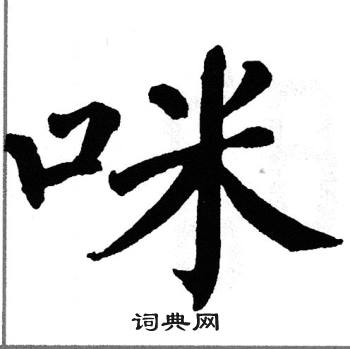 咪
词典网